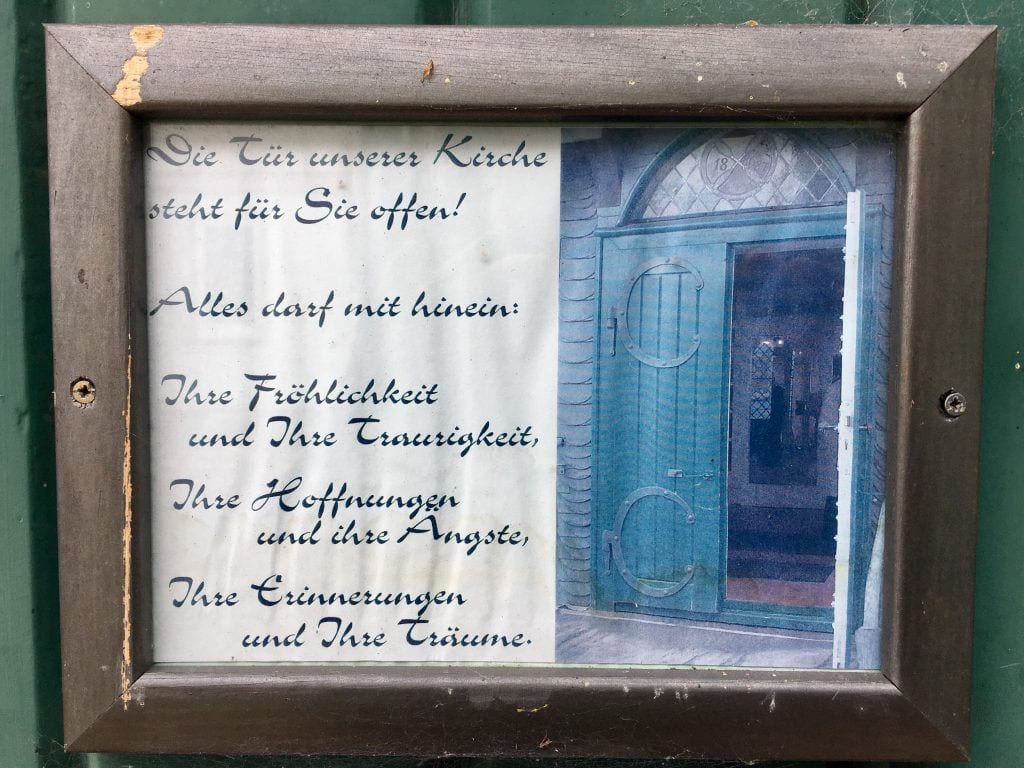 Die Tür unserer Kirche
steht für Sie offen!
Alles darf mit hinein:
Ihre Fröhlichkeit
und Ihre Traurigkeit,
Ihre Hoffnungen
und ihre Ängste,
Ihre Erinnerungen
und Ihre Träume.
18